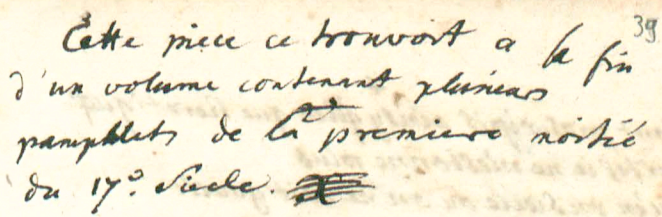 39
Cette piece ce trouvoit a la fin
d'un volume contenant plusieurs
pamphlets de la premiere moitié
du 17e. Siecle.